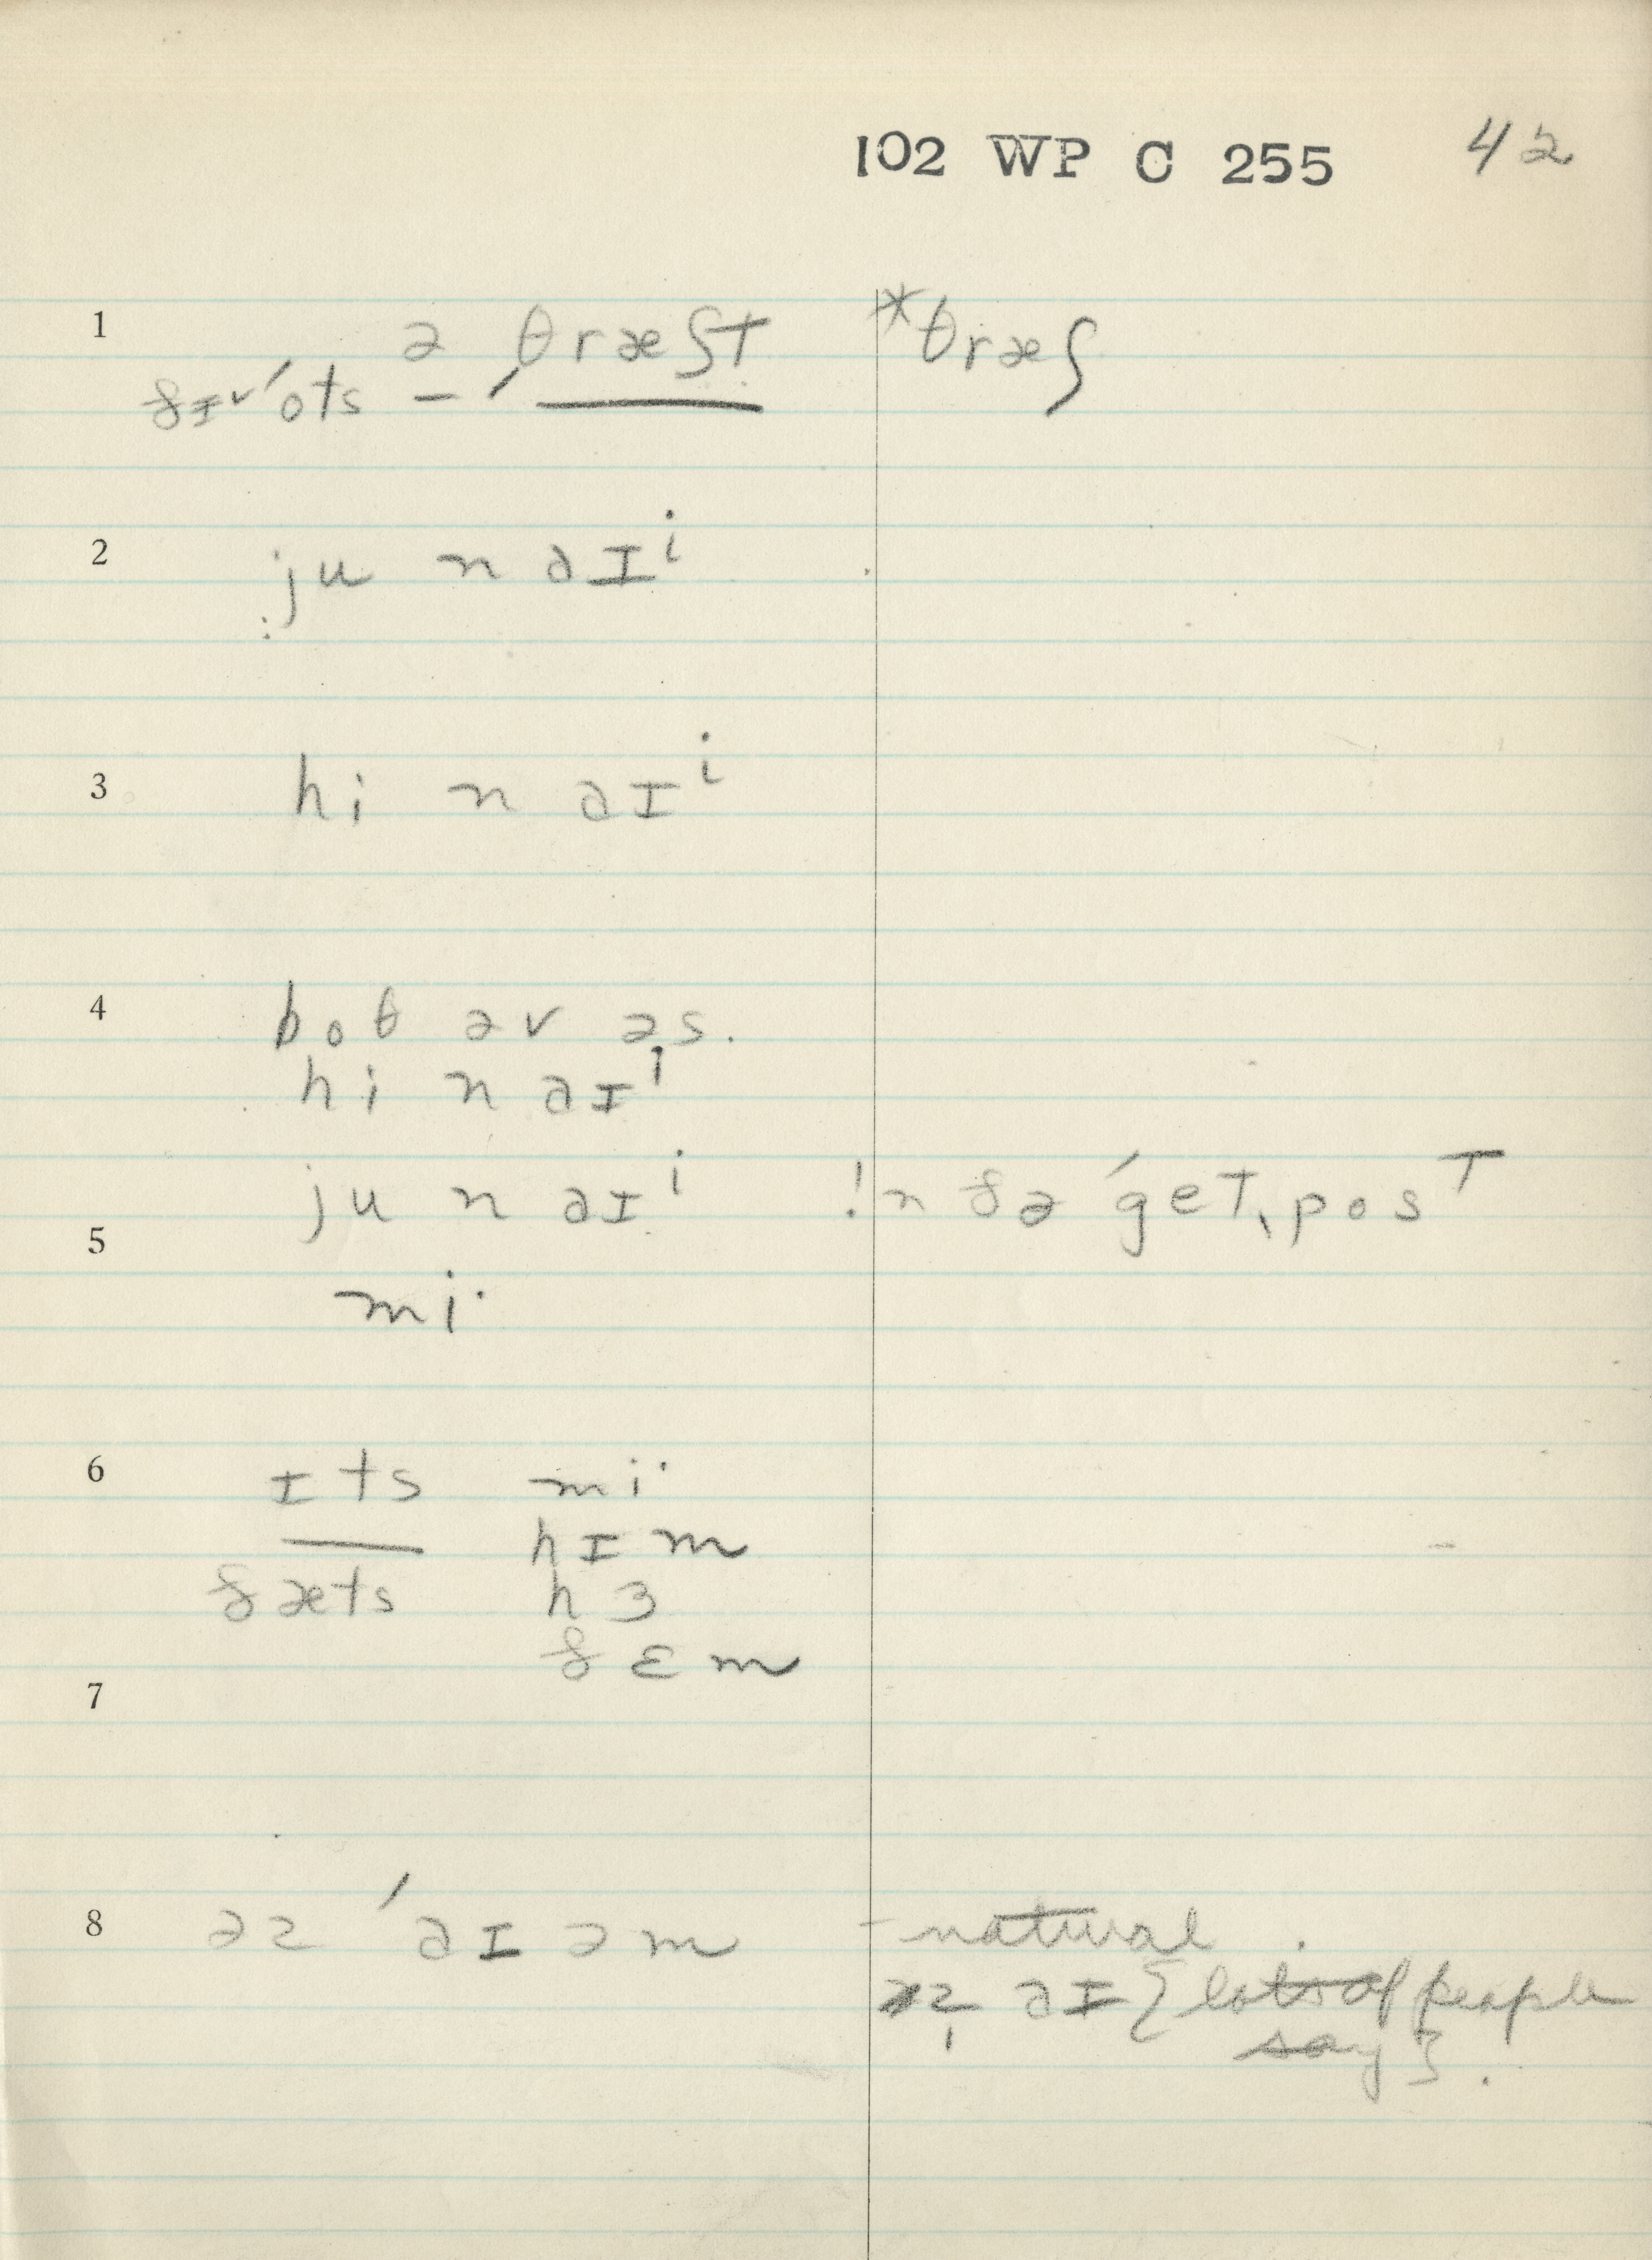 102 WP C 255 42
1 ə θræʃt *θræʃ
ðɪˇ ˈots – ˈ
2 ju n aɪⁱ
3 hi n aɪⁱ
4 boθ əv əs.
hi n aɪⁱ
ju n aɪⁱ !n ðə ˈget ˌpost
5
mi·
6 ɪts mi·
hɪm
ðæts hɜ
ðɛm
7
8 əz ˈaɪ əm - natural
æz aɪ { lots of people
say } .